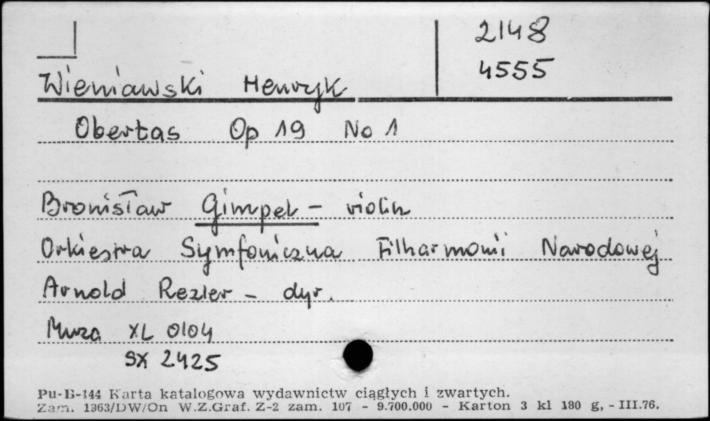 2148
4555
Wieniawski Henryk
Obertas Op 19 No 1
Bronisław Gimpel - violin
Orkiestra Symfoniczna Filharmonii Narodowej
Arnold Rezler - dyr.
Muza XL 0104
SX 2425
Pu-B-144 Karta katalogowa wydawnictw ciągłych i zwartych.
Zam. 1363/DW/On W.Z.Graf. Z-2 zam. 107 - 9.700.000 - Karton 3 kl 180 g, - III.76.